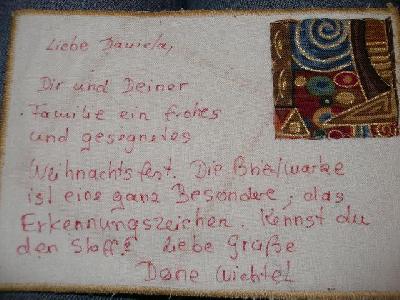 Liebe Daniela,
Dir und Deiner
Familie ein frohes
und gesegnetes
Weihnachtsfest. Die Briefmarke
ist eine ganz Besondere, das
Erkennungszeichen. Kennst du
den Stoff? Liebe Grüße
Deine Wichtel